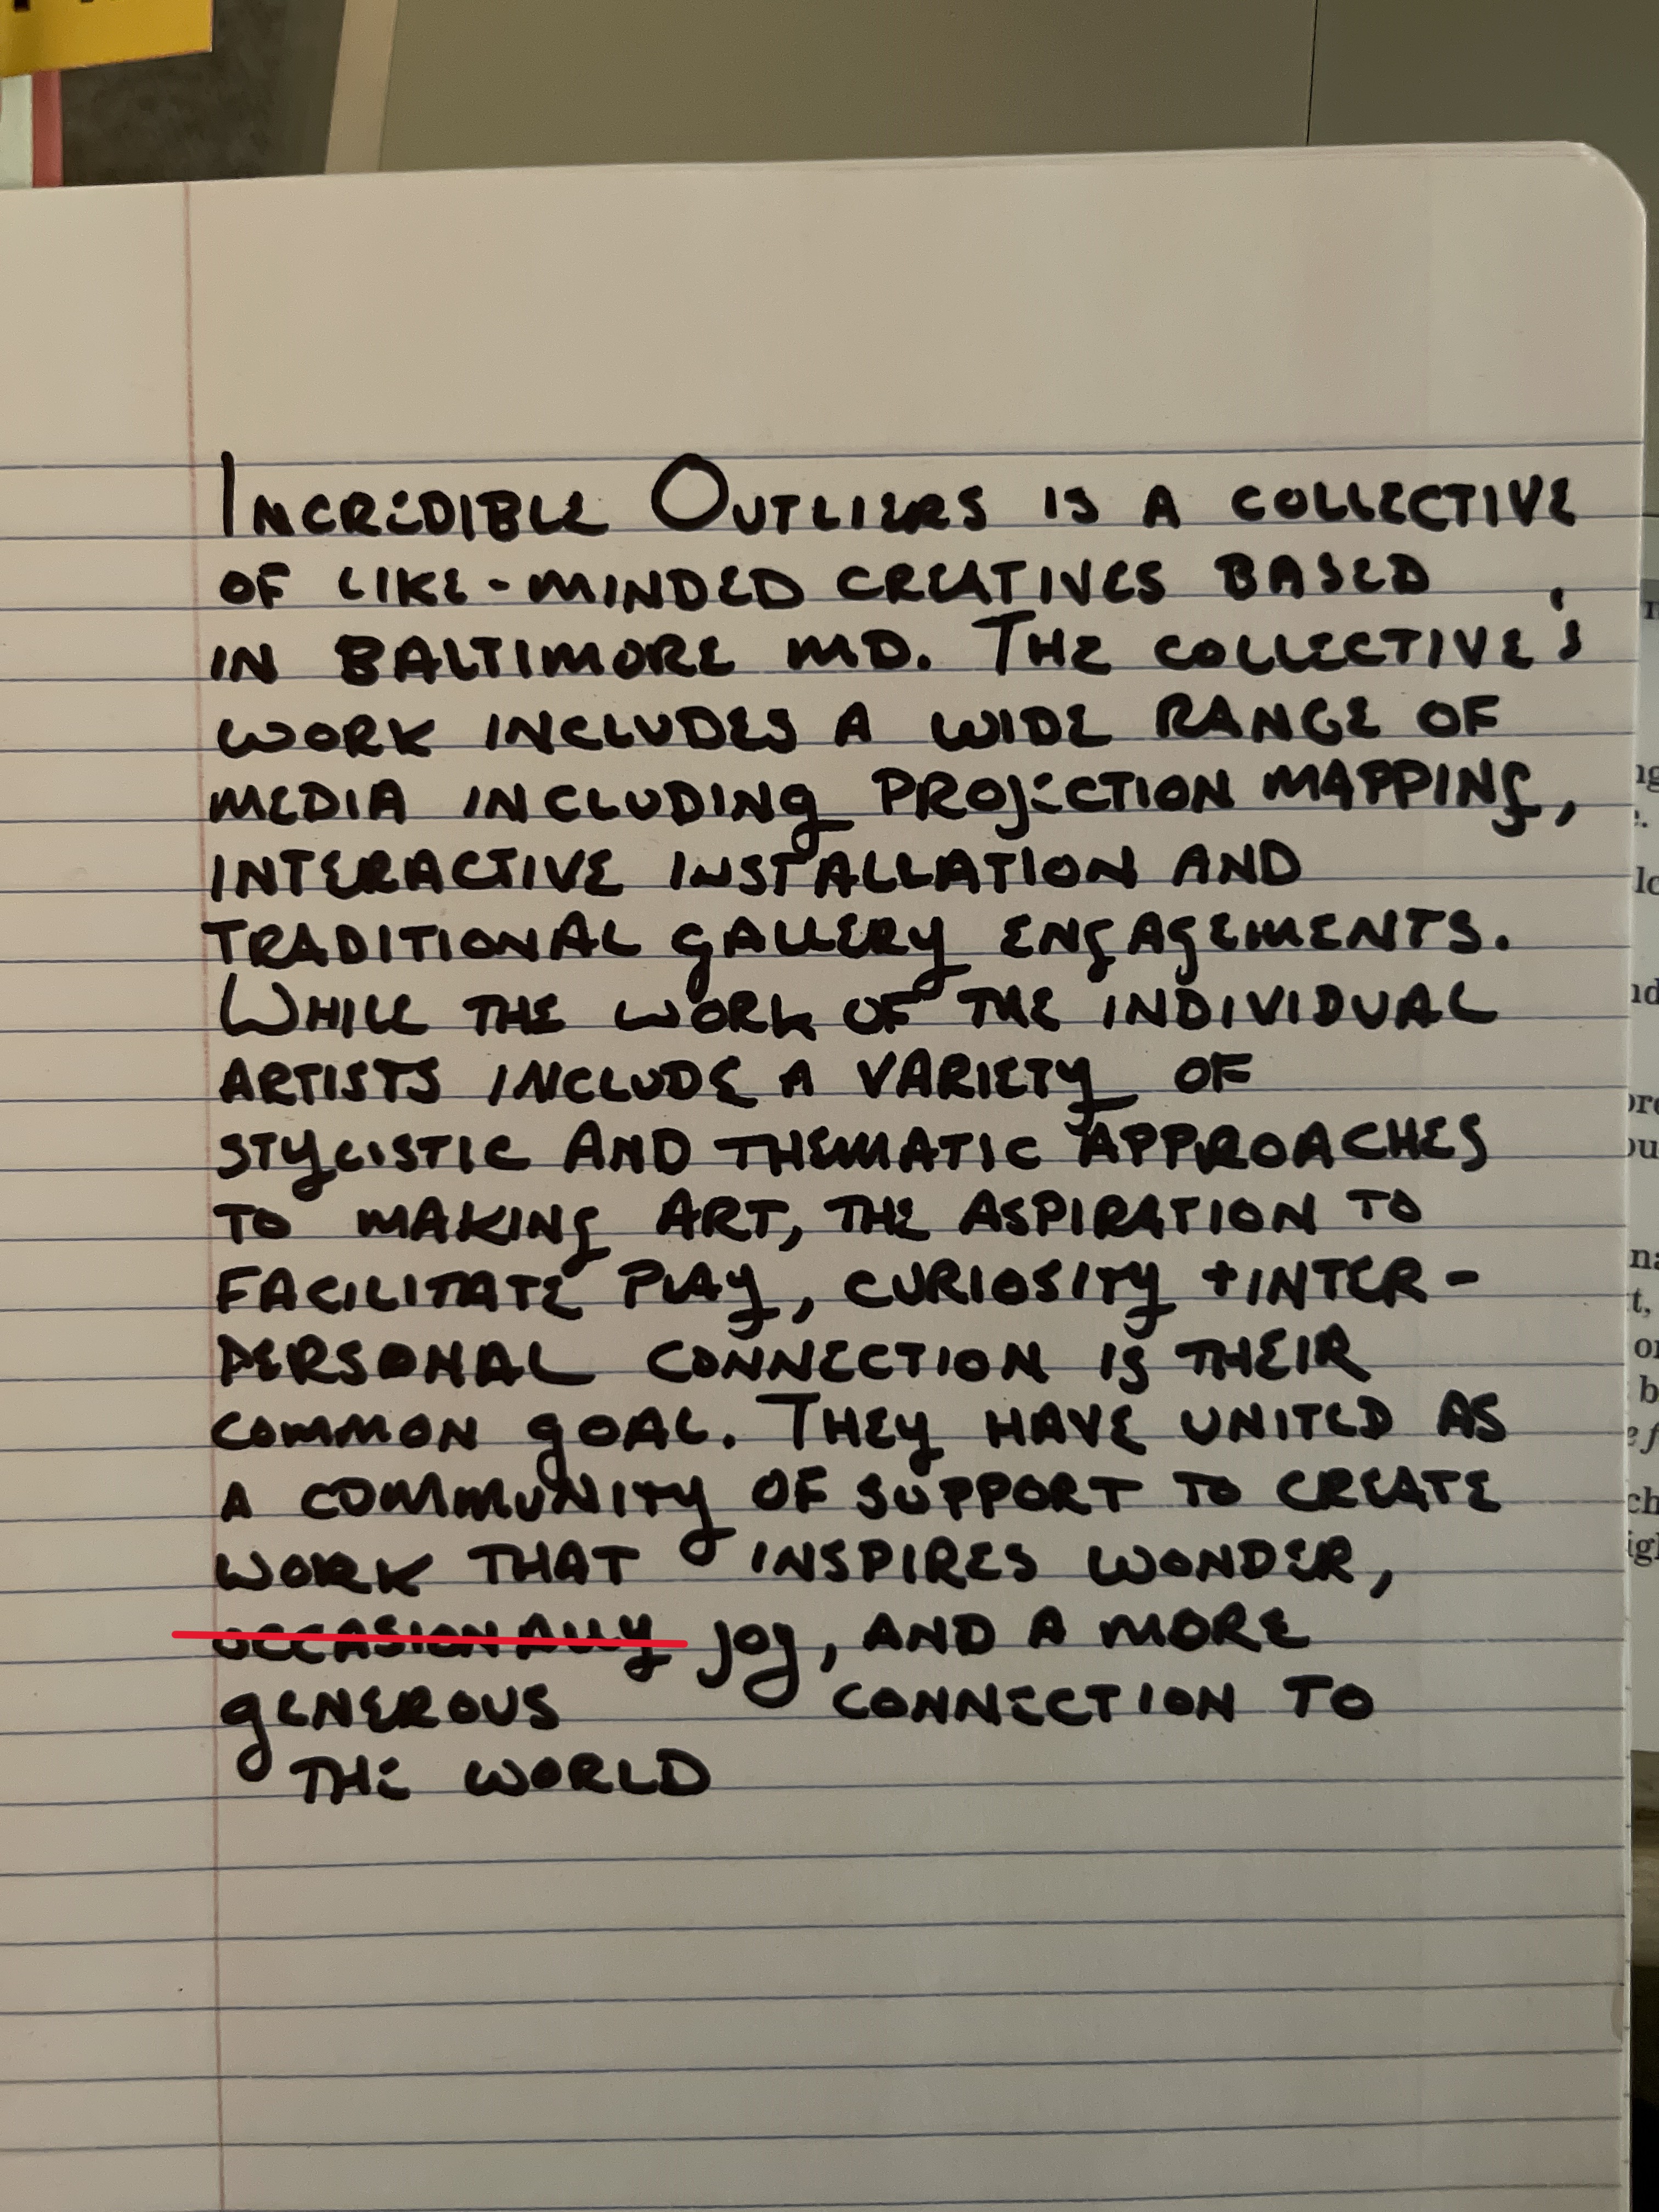 Incredible Outliers is a collective
of like-minded creatives based
in Baltimore MD. The collective's
work includes a wide range of
media including projection mapping,
interactive installation and
traditional gallery engagements.
While the work of the individual
artists include a variety of
stylistic and thematic approaches
to making art, the aspiration to
facilitate play, curiosity + inter-
personal connection is their
common goal. They have united as
a community of support to create
work that inspires wonder,
occasionally joy, and a more
generous connection to
the world